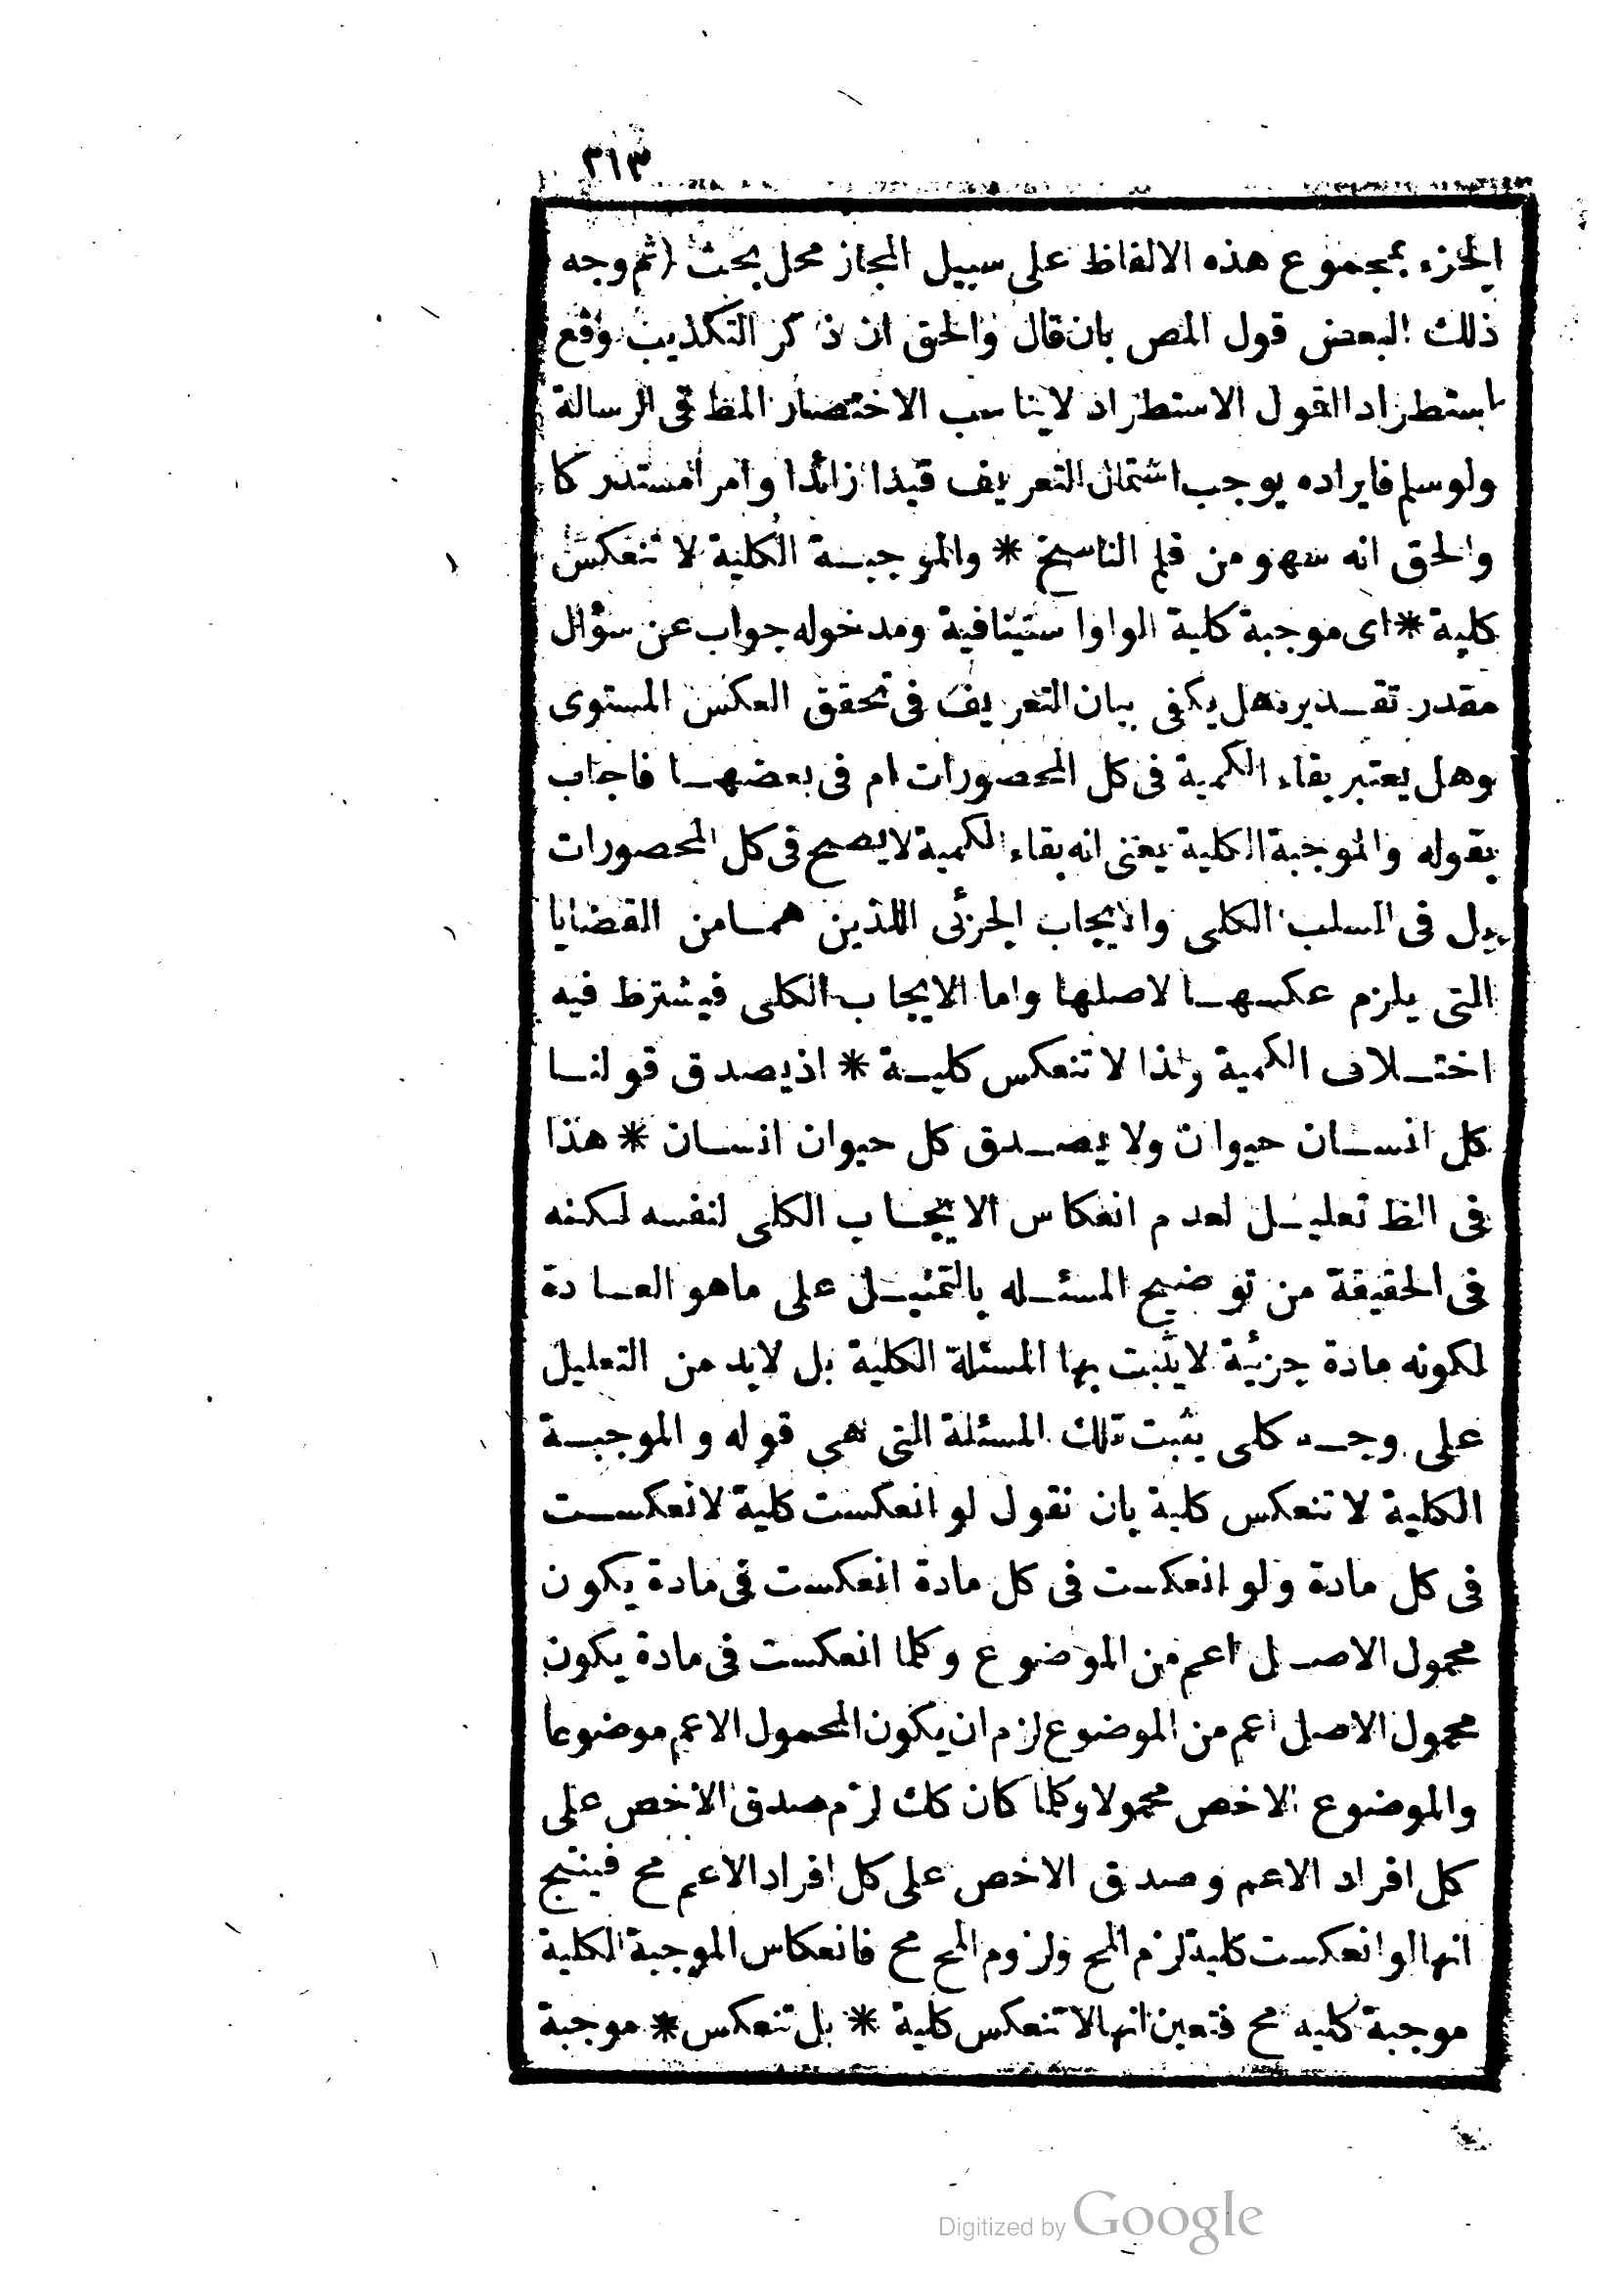 ٢١٣
الجزء بمجموع هذه الالفاظ على سبيل المجاز محل بحث (ثم وجه
ذلك البعض قول المص بان قال والحق ان ذكر التكذيب وقع
استطراد اقول الاستطراد لا يناسب الاختصار المط فى الرسالة
ولو سلم فايراده يوجب اشتمال التعريف قيدا زائدا وامرا مستدركا
والحق انه سهو من قلم الناسخ * والموجبة الكلية لا تنعكس
كلية * اى موجبة كلية الواو استينافية ومدخوله جواب عن سؤال
مقدر تقديره هل يكفى بيان التعريف فى تحقق العكس المستوى
وهل يعتبر بقاء الكمية فى كل المحصورات ام فى بعضها فاجاب
بقوله والموجبة الكلية يعنى انه بقاء الكمية لا يصح فى كل المحصورات
بل فى السلب الكلى والايجاب الجزئى اللذين هما من القضايا
التى يلزم عكسها لاصلها واما الايجاب الكلى فيشترط فيه
اختلاف الكمية ولذا لا تنعكس كلية * اذ يصدق قولنا
كل انسان حيوان ولا يصدق كل حيوان انسان * هذا
فى الظ تعليل لعدم انعكاس الايجاب الكلى لنفسه لكنه
فى الحقيقة من توضيح المسئله بالتمثيل على ما هو العادة
لكونه مادة جزئية لا يثبت بها المسئلة الكلية بل لابد من التعليل
على وجه كلى يثبت تلك المسئلة التى هى قوله والموجبة
الكلية لا تنعكس كلية بان نقول لو انعكست كلية لانعكست
فى كل مادة ولو انعكست فى كل مادة انعكست فى مادة يكون
محمول الاصل اعم من الموضوع وكلما انعكست فى مادة يكون
محمول الاصل اعم من الموضوع لزم ان يكون المحمول الاعم موضوعا
والموضوع الاخص محمولا وكلما كان كك لزم صدق الاخص على
كل افراد الاعم وصدق الاخص على كل افراد الاعم مح فينتج
انها لو انعكست كلية لزم المح ولزوم المح مح فانعكاس الموجبة الكلية
موجبة كليه مح فتعين انها لا تنعكس كلية * بل تنعكس * موجبة
Digitized by Google